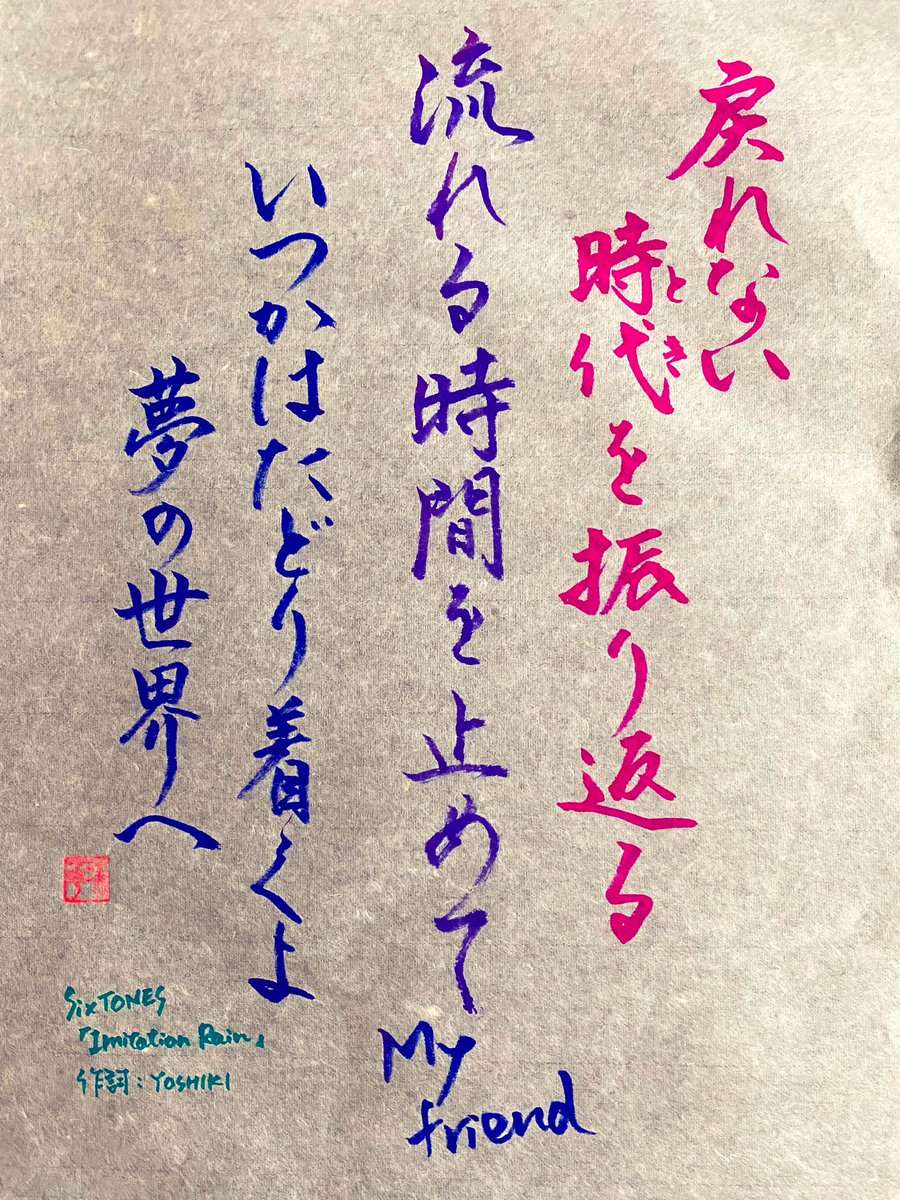 戻れない
時代を振り返る
とき
流れる時間を止めて
My
friend
いつかはたどり着くよ
夢の世界へ
SixTONES
「Imitation Rain」
作詞：YOSHIKI